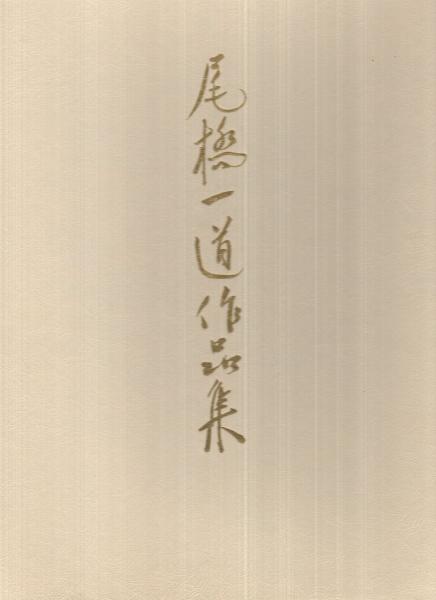 尾橋一道作品集